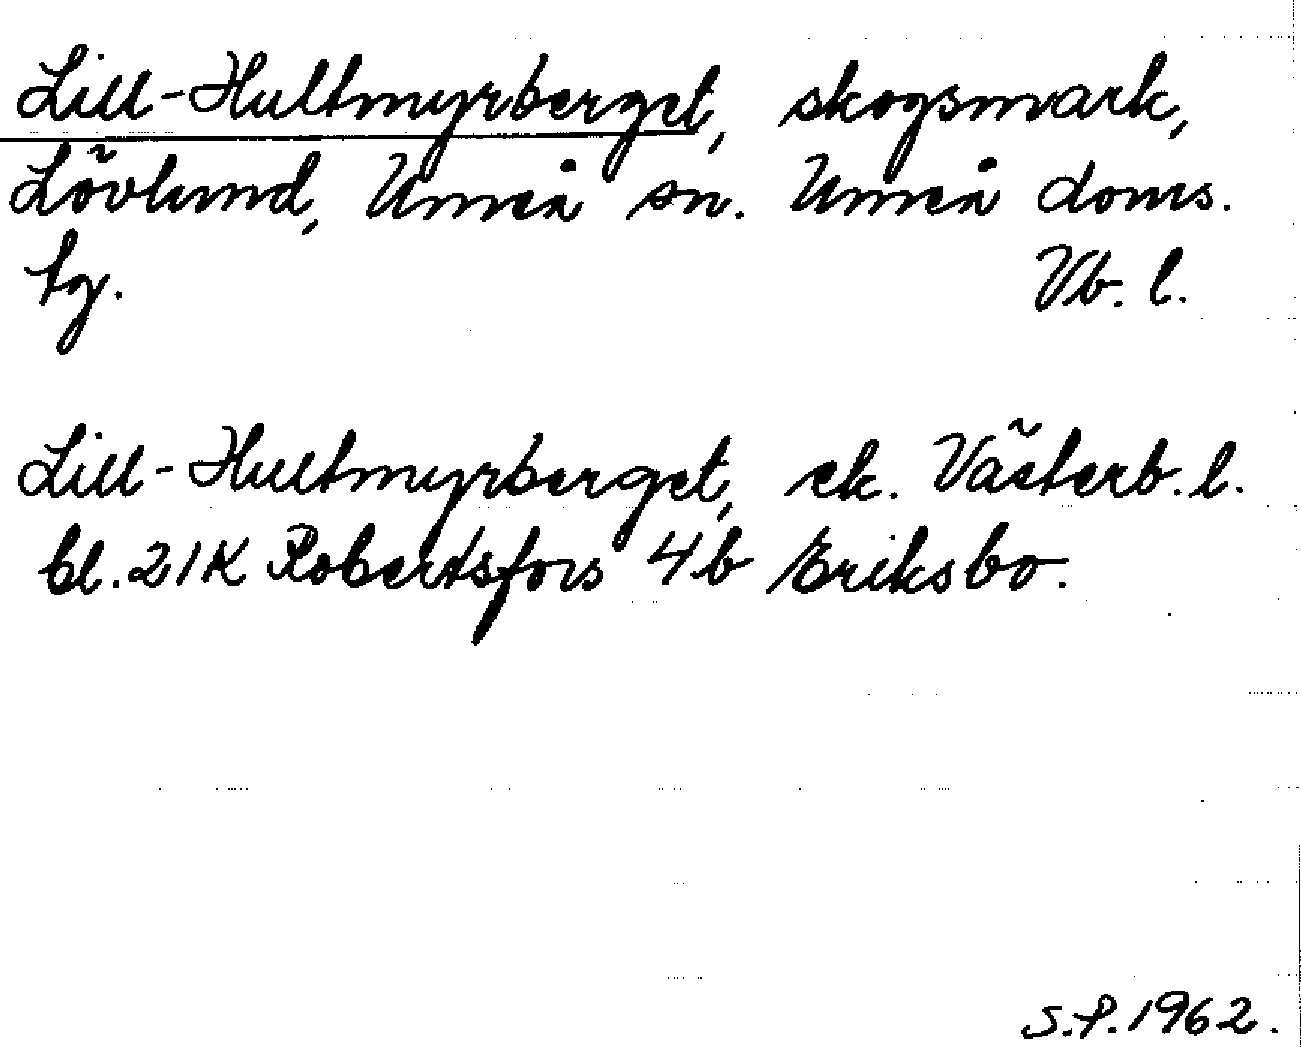 Lill-Hultmyrberget, skogsmark,
Lövlund, Umeå sn. Umeå doms.
tg. Vb. l.
Lill-Hultmyrberget, ek. Västerb. l.
bl. 21K Robertsfors 4b Eriksbo.
S.P. 1962.